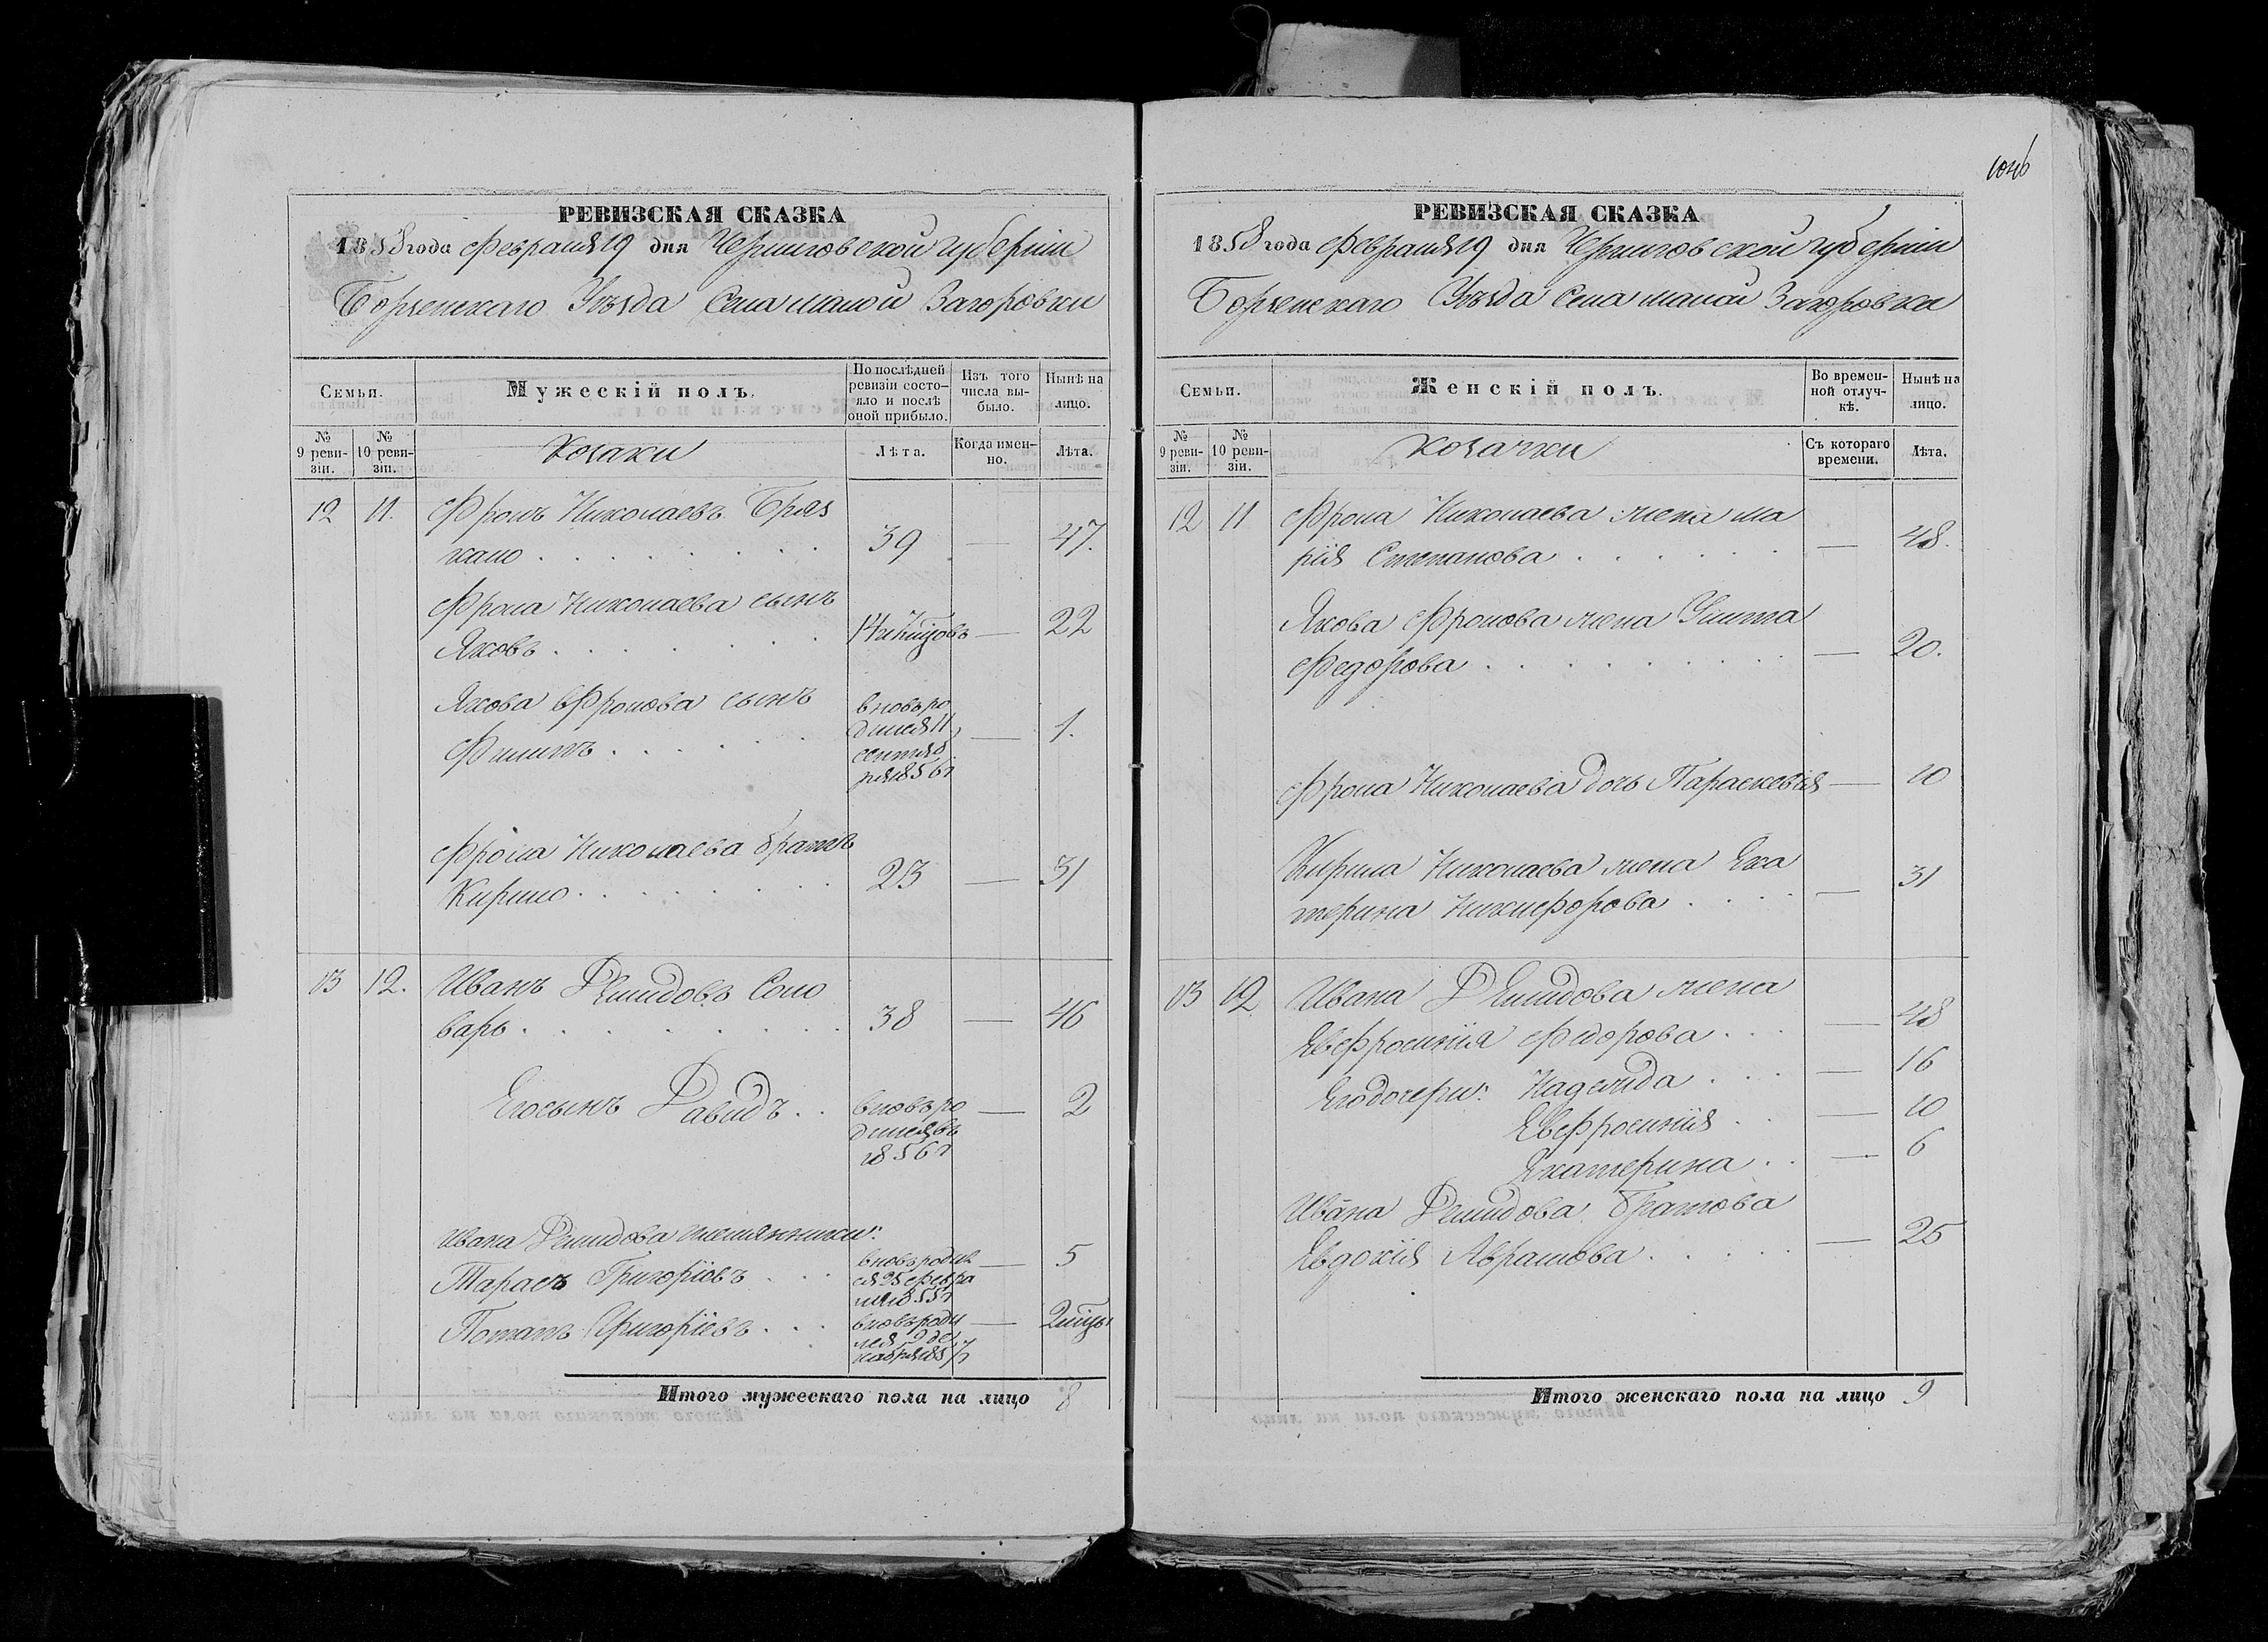 РЕВИЗСКАЯ СКАЗКА
1858 года Февраля 19 дня Черниговской губерніи
Борзенскаго Уѣзда Села малой Загоровки
Семьи.
Мужескій полъ.
По послѣдней
ревизіи состо-
яло и послѣ
оной прибыло.
Изъ того
числа вы-
было.
Нынѣ на
лицо.
№
9 реви-
зіи.
№
10 реви-
зіи.
Козаки
Лѣта.
Когда имен-
но.
Лѣта.
12 11. Фролъ Николаевъ
39 — 47.
Фрола Николаева сынъ
Яковъ . . . . . . 14 — 22
Якова Фролова сынъ
Филипъ . . . . . .
вновь ро
дился 11
сентяб
ря 1856 г
— 1.
Фрола Николаева братъ
Кирило . . . . . . . 23 — 31
13 12. Иванъ Демидовъ Соло
варь . . . . . . . . 38 — 46
Его сынъ Давидъ . .
вновь ро
дился въ
1856 г
— 2
Ивана Демидова племянники:
Тарасъ Григоріевъ . . .
вновь родил
ся 25 февра
— 5
Потапъ Григоріевъ . . .
вновь роди
лся 9 де
кабря 1857 г
— 2 мѣсцы
Итого мужескаго пола на лицо 8
1046
РЕВИЗСКАЯ СКАЗКА
1858 года Февраля 19 дня Черниговской губерніи
Борзенскаго Уѣзда Села малой Загоровки
Семьи.
Женскій полъ.
Во времен-
ной отлуч-
кѣ.
Нынѣ на
лицо.
№
9 реви-
зіи.
№
10 реви-
зіи.
козачки
Съ котораго
времени.
Лѣта.
12 11 Фрола Николаева жена Ма
рія Степанова . . . . . . — 48.
Якова Фролова жена Улита
Федорова . . . . . . . . . — 20.
Фрола Николаева дочь Параскевія — 10
Кирила Николаева жена Ека
терина Никифорова . . . . — 31
13 12 Ивана Демидова жена
Евфросинія Федорова . . . — 48
Его дочери: Надежда . . . — 16
Евфросинія . . — 10
Екатерина . . — 6
Ивана Демидова братова
Евдокія Абрамова . . . . . — 25
Итого женскаго пола на лицо 9